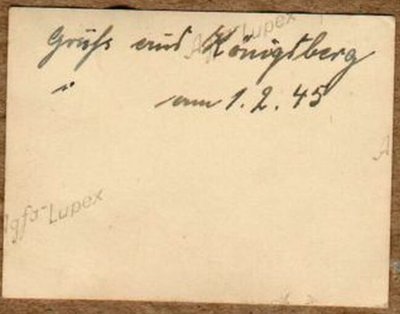 Gruß aus Königsberg
i am 1.2.45
Agfa-Lupex
Agfa-Lupex
A